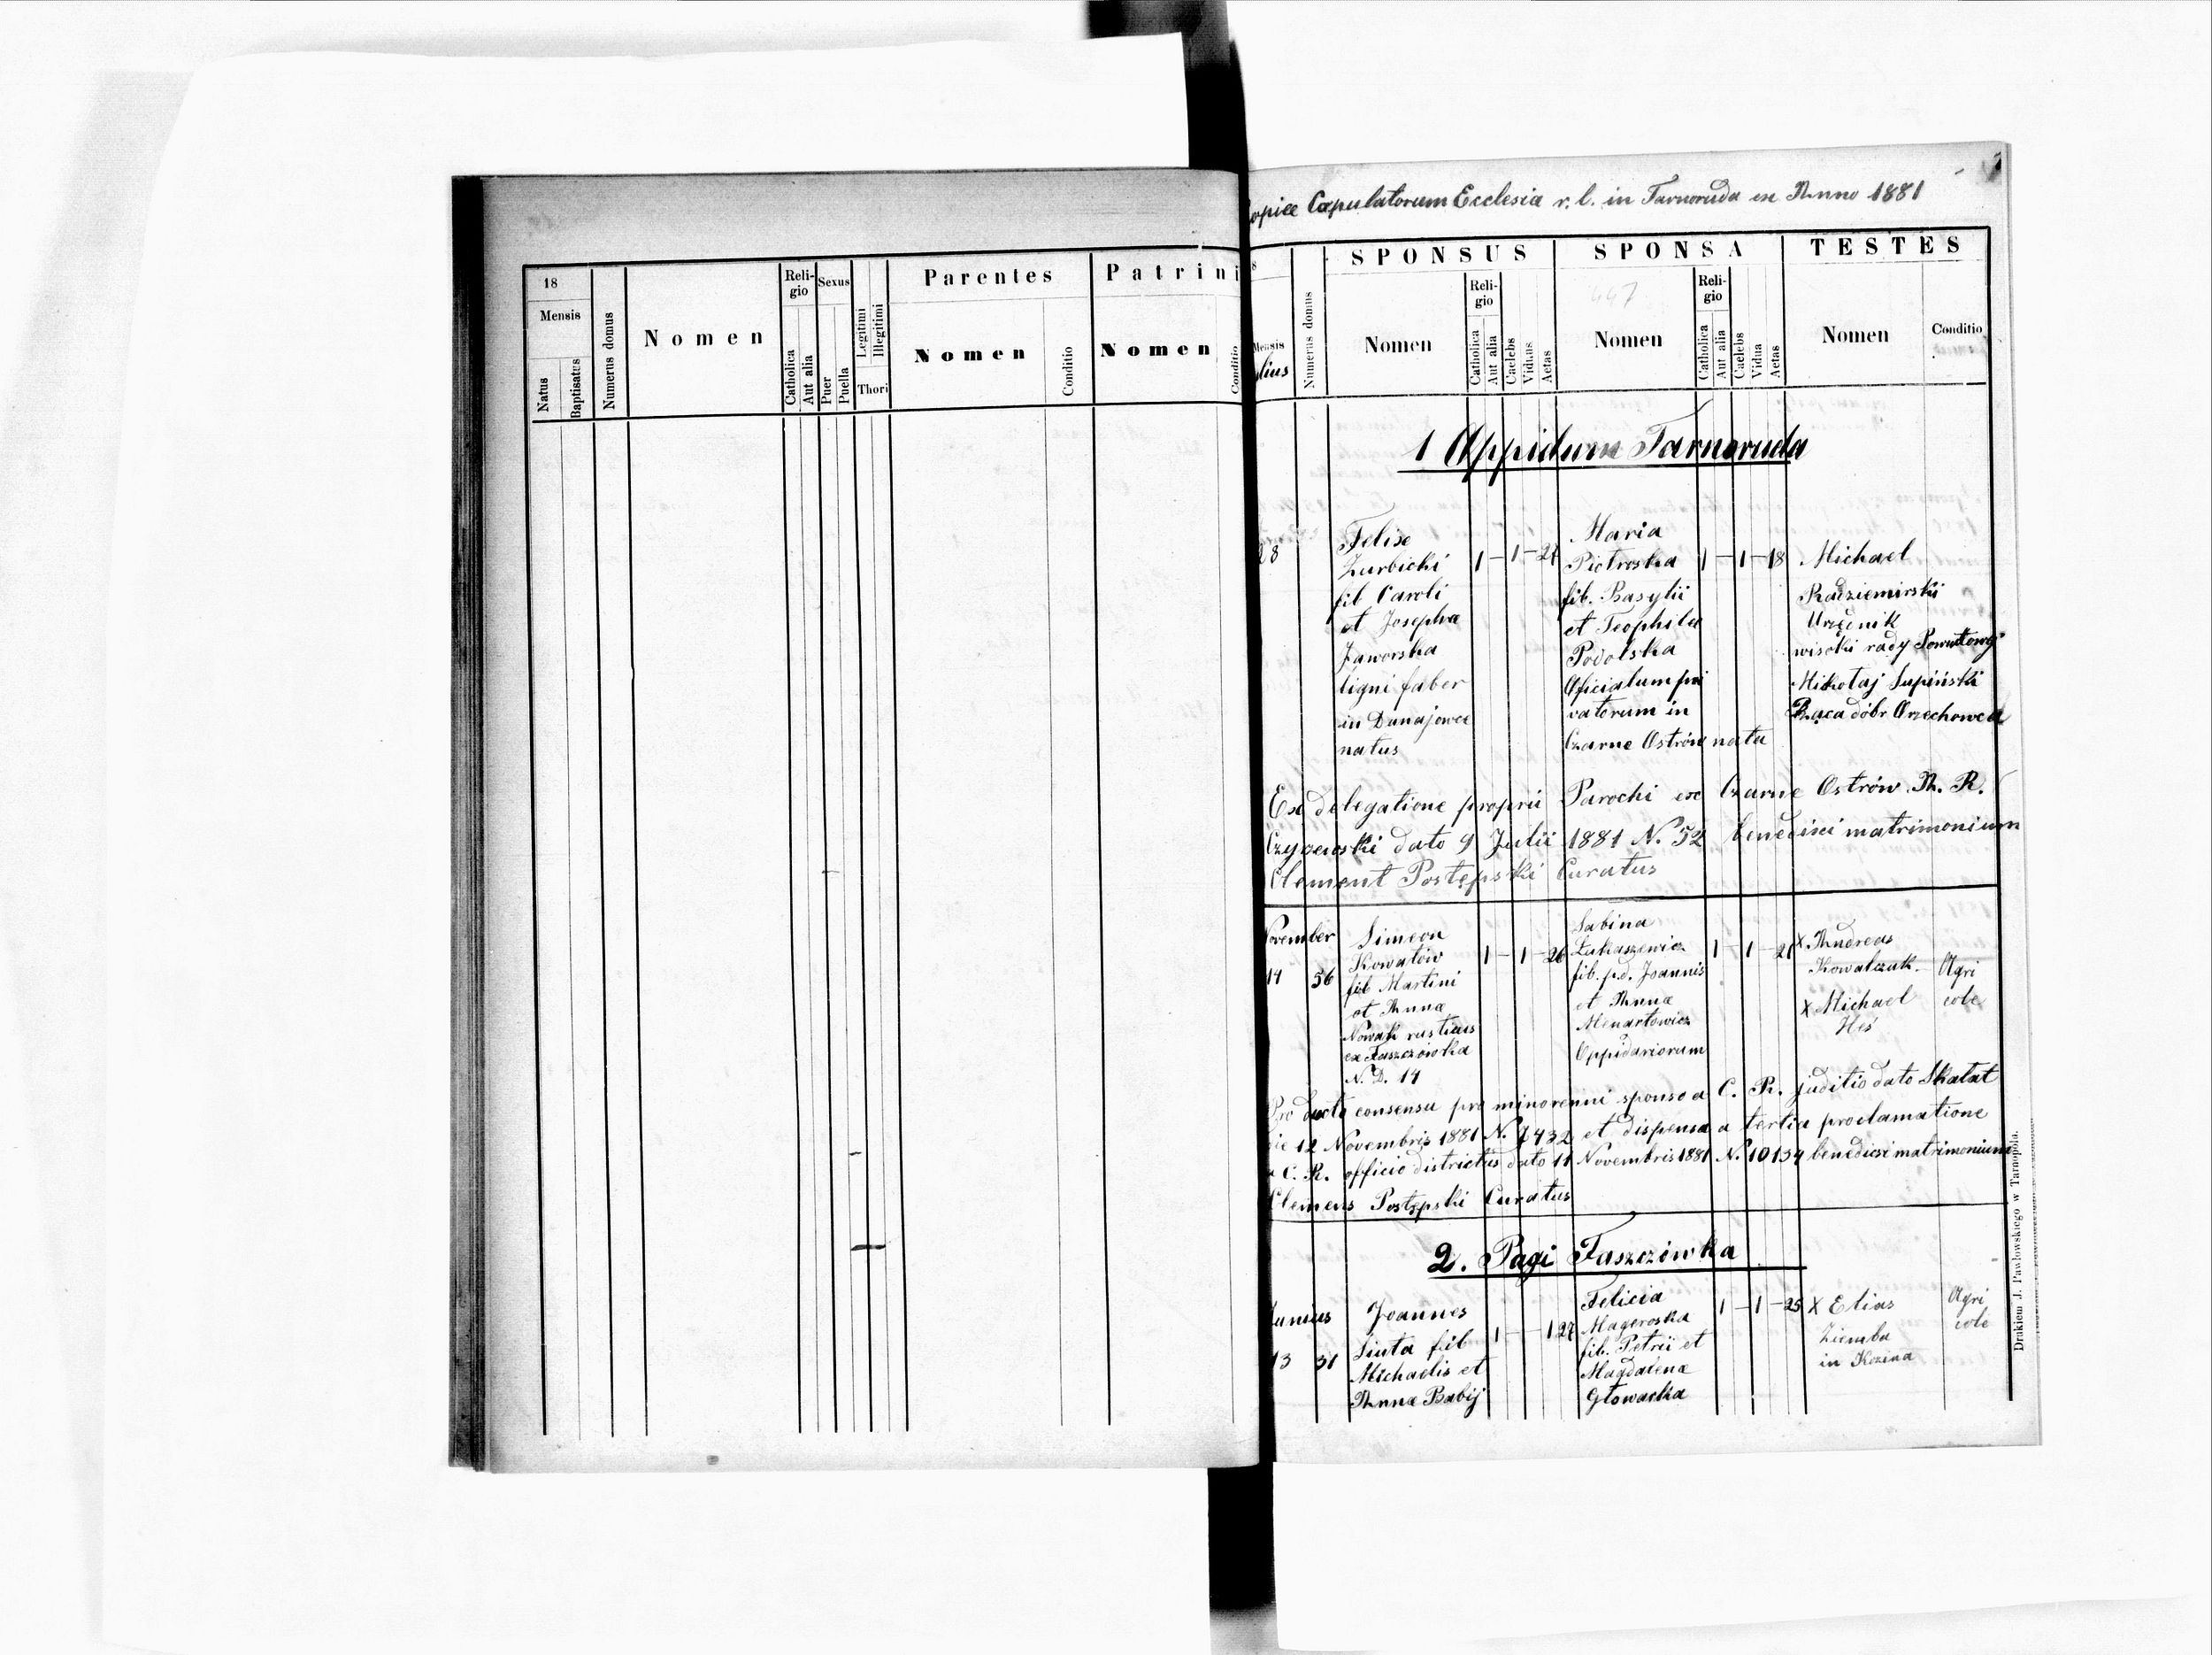 18
Mensis
Natus
Baptisatus
Numerus domus
Nomen
Reli-
gio
Catholica
Aut alia
Sexus
Puer
Puella
Legitimi
Illegitimi
Thori
Parentes
Nomen
Conditio
Patrini
Nomen
Conditio
Copulatorum Ecclesia r. l. in Tarnoruda ex Anno 1881
Mensis
Numerus domus
SPONSUS
Nomen
Reli-
gio
Catholica
Aut alia
Caelebs
Viduus
Aetas
SPONSA
447
Nomen
Reli-
gio
Catholica
Aut alia
Caelebs
Vidua
Aetas
TESTES
Nomen
Conditio
1 Oppidum Tarnoruda
28
Felix
Zurbicki
fil Caroli
et Josepha
Jaworska
ligni faber
in Dunajowce
natus
1 – 1 –
Maria
Pietroska
fil. Basylii
et Teophila
Podolska
Oficialum pri
vatorum in
Czarne Ostrów nata
1 – 1 – 18
Michael
Radziemirski
Urzędnik
rady Powiatowej
Mikołaj Łupiński
Rządca dóbr Orzechowca
Ex delegatione proprii Parochi ex Czarne Ostrów A. R.
dato 9 Julii 1881 N. 52 benedixi matrimonium
Clement Postępski Curatus
November
14 56
Simeon
Kowalów
fil Martini
et Anna
Nowak rusticus
ex Faszczówka
N. D. 14
1 – 1 – 26
Sabina
Łukaszewicz
fil. p.d. Joannis
et Anna
Menartowicz
Oppidariorum
1 – 1 – 21
X Andreas
Kowalczuk
X Michael
Agri
cole
Producto consensu pro minorenni sponso a C. R. juditio dato Skałat
die 12 Novembris 1881 N. 7432 et dispensa a tertia proclamatione
a C. R. officio districtus dato 11 Novembris 1881 N. 10134 benedixi matrimonium
Clemens Postępski Curatus
2. Pagi Faszczówka
Junius
13 31
Joannes
Siuta fil
Michaelis et
Anna Babij
1 – 1 27
Felicia
Mageroska
fil. Petrii et
Magdalena
Głowacka
1 – 1 – 25
X Elias
Ziemba
in Kozina
Agri
cole
Drukiem J. Pawłowskiego w Tarnopolu.